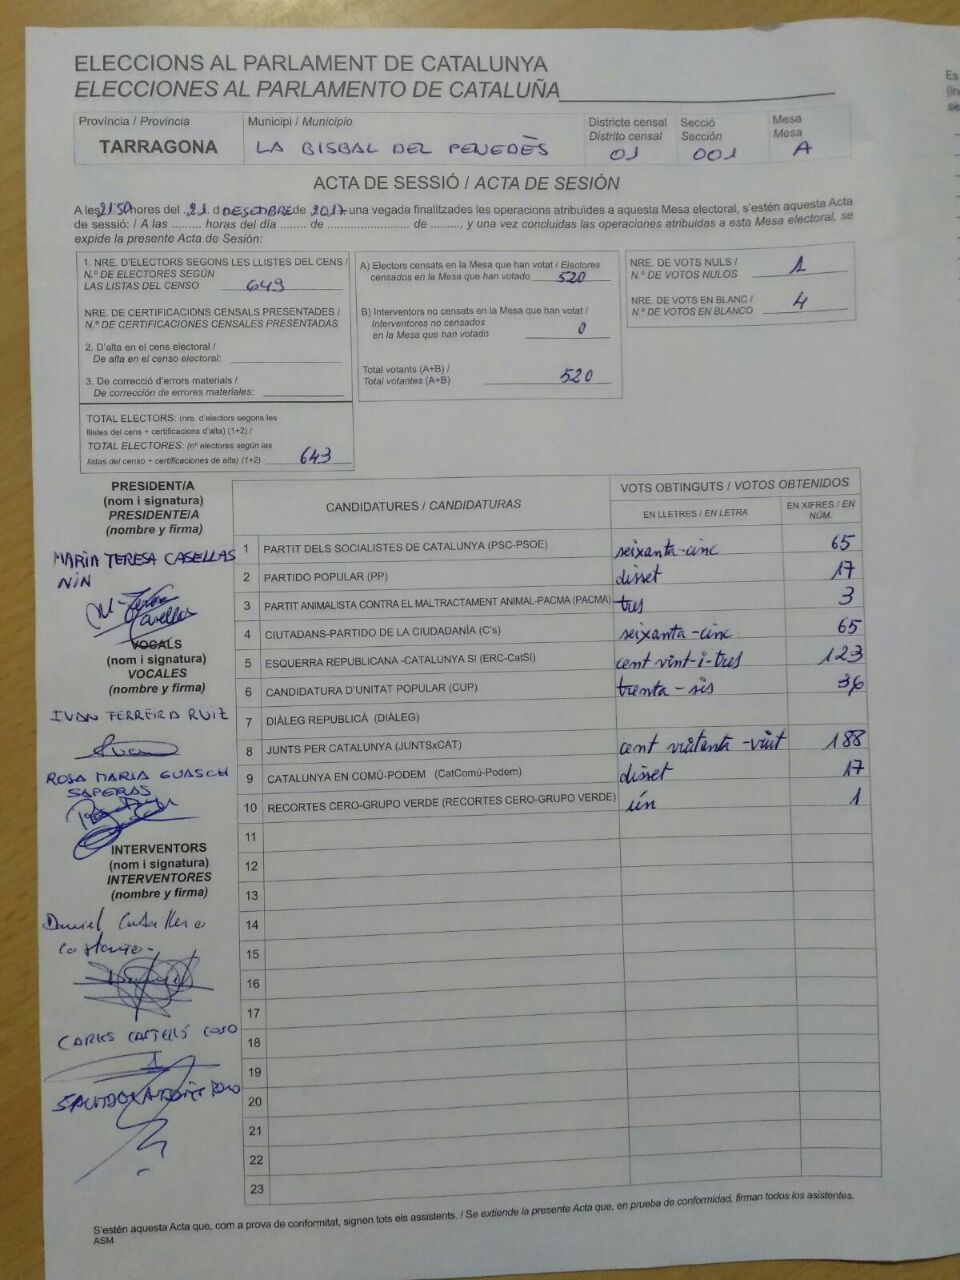 ELECCIONS AL PARLAMENT DE CATALUNYA
ELECCIONES AL PARLAMENTO DE CATALUÑA
Província / Provincia
TARRAGONA
Municipi / Municipio
LA BISBAL DEL PENEDÈS
Districte censal
Distrito censal
01
Secció
Sección
001
Mesa
Mesa
A
ACTA DE SESSIÓ / ACTA DE SESIÓN
A les 21:50 hores del 21 d DESEMBRE de 2017 una vegada finalitzades les operacions atribuïdes a aquesta Mesa electoral, s'estén aquesta Acta
de sessió: / A las ......... horas del día ....... de ...................... de ......., y una vez concluidas las operaciones atribuidas a esta Mesa electoral, se
expide la presente Acta de Sesión:
1. NRE. D'ELECTORS SEGONS LES LLISTES DEL CENS /
N.º DE ELECTORES SEGÚN
LAS LISTAS DEL CENSO 643
NRE. DE CERTIFICACIONS CENSALS PRESENTADES /
N.º DE CERTIFICACIONES CENSALES PRESENTADAS
2. D'alta en el cens electoral /
De alta en el censo electoral:
3. De correcció d'errors materials /
De corrección de errores materiales:
TOTAL ELECTORS: (nre. d'electors segons les
llistes del cens + certificacions d'alta) (1+2) /
TOTAL ELECTORES: (nº electores según las
listas del censo + certificaciones de alta) (1+2) 643
A) Electors censats en la Mesa que han votat / Electores
censados en la Mesa que han votado 520
B) Interventors no censats en la Mesa que han votat /
Interventores no censados
en la Mesa que han votado 0
Total votants (A+B) /
Total votantes (A+B) 520
NRE. DE VOTS NULS /
N.º DE VOTOS NULOS 1
NRE. DE VOTS EN BLANC /
N.º DE VOTOS EN BLANCO 4
PRESIDENT/A
(nom i signatura)
PRESIDENTE/A
(nombre y firma)
MARIA TERESA CASELLAS
NIN
VOCALS
(nom i signatura)
VOCALES
(nombre y firma)
IVAN FERREIRA RUIZ
ROSA MARIA GUASCH
SAPERAS
INTERVENTORS
(nom i signatura)
INTERVENTORES
(nombre y firma)
Daniel Caballero
CARLES CASTELLÓ
CANDIDATURES / CANDIDATURAS
VOTS OBTINGUTS / VOTOS OBTENIDOS
EN LLETRES / EN LETRA
EN XIFRES / EN
NÚM.
1 PARTIT DELS SOCIALISTES DE CATALUNYA (PSC-PSOE) seixanta-cinc 65
2 PARTIDO POPULAR (PP) disset 17
3 PARTIT ANIMALISTA CONTRA EL MALTRACTAMENT ANIMAL-PACMA (PACMA) tres 3
4 CIUTADANS-PARTIDO DE LA CIUDADANÍA (C's) seixanta-cinc 65
5 ESQUERRA REPUBLICANA -CATALUNYA SÍ (ERC-CatSí) cent vint-i-tres 123
6 CANDIDATURA D'UNITAT POPULAR (CUP) trenta-sis 36
7 DIÀLEG REPUBLICÀ (DIÀLEG)
8 JUNTS PER CATALUNYA (JUNTSxCAT) cent vuitanta-vuit 188
9 CATALUNYA EN COMÚ-PODEM (CatComú-Podem) disset 17
10 RECORTES CERO-GRUPO VERDE (RECORTES CERO-GRUPO VERDE) ún 1
11
12
13
14
15
16
17
18
19
20
21
22
23
S'estén aquesta Acta que, com a prova de conformitat, signen tots els assistents. / Se extiende la presente Acta que, en prueba de conformidad, firman todos los asistentes.
ASM